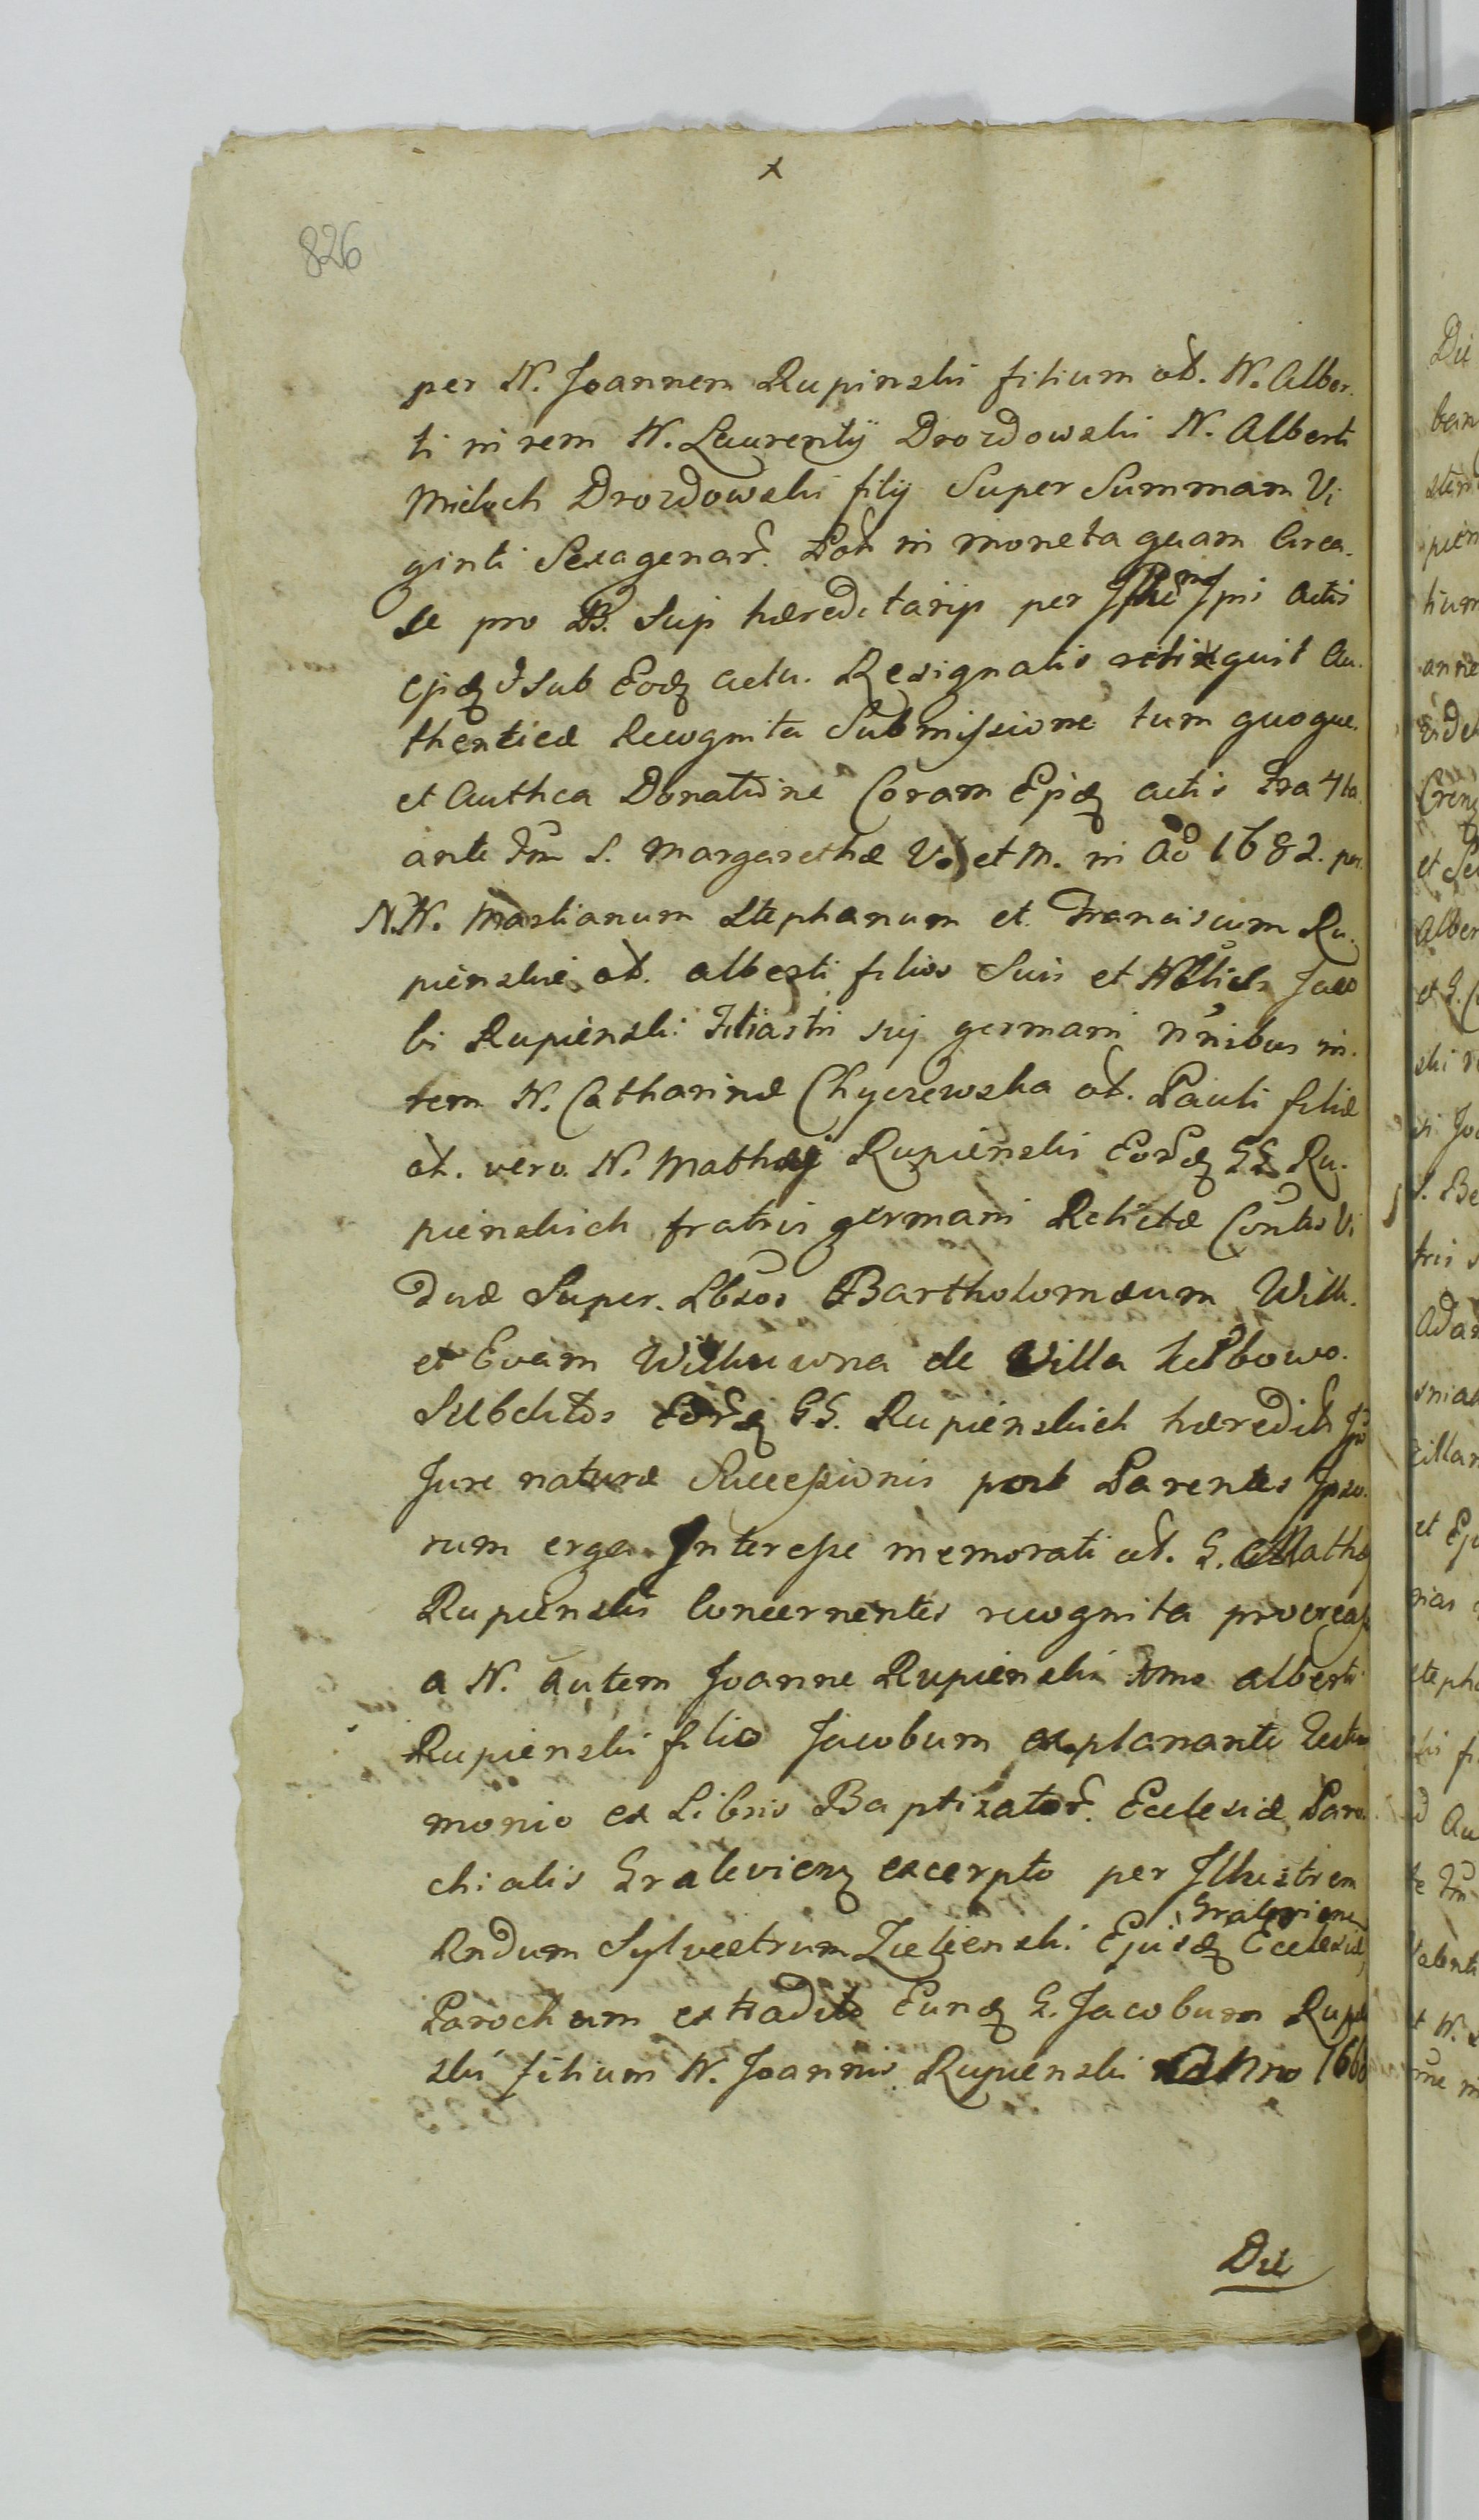 x
826
per N. Joannem Rupinski filium ol. N. Alber
ti in rem N. Laurentÿ Drozdowski N. Alberti
Mieloch Drozdowski filÿ Super Summam Vi
ginti Sexagenar. Pol. in moneta quam Circa
se pro B. Suis hæreditarÿs per Ipsi Actis
ejusdq sub Eodq actu. Resignatis Au
thenticæ Recognita Submissione tum quoque
et Authca Donatione Coram Ejdq actis fra 4ta
ante fm S. Margarethæ V. et M. in Ao 1682. per
N.N. Martianum Stephanum et Franciscum Ru
pienskie ol. Alberti filios Suis et Jaco
bi Rupienski filiastri sui germani nnibus in
rem N. Catharinæ Chyczewska ol. Pauli filiæ
ol. vero N. Mathæÿ Rupienski Eordq GG Ru
pienskich fratris germani Relictæ Contis Vi
duæ Super. Lbsos Bartholomæum Wilk
et Evam Wilkuwna de Villa
Subditos Eordq GG. Rupienskich hæredit. Jn
Jure naturæ Successionis post Parentes Ipso
rum erga Interesse memorati ol. G. Mathæ
Rupienski Concernentes recognita procreas
a N. autem Joanne Rupienski Alberti
Rupienski filio Jacobum explanante Testi
monio ex Libris Baptizator. Ecclesiæ Paro
chialis Gralevienq excerpto per Illustrem
Rndum Sylvestrum Zielienski Ejusdq Gralevien Ecclesiæ
Parochum extradito Eundq G. Jacobum Rupie
ski filium N. Joannis Rupienski Anno 1660
Die